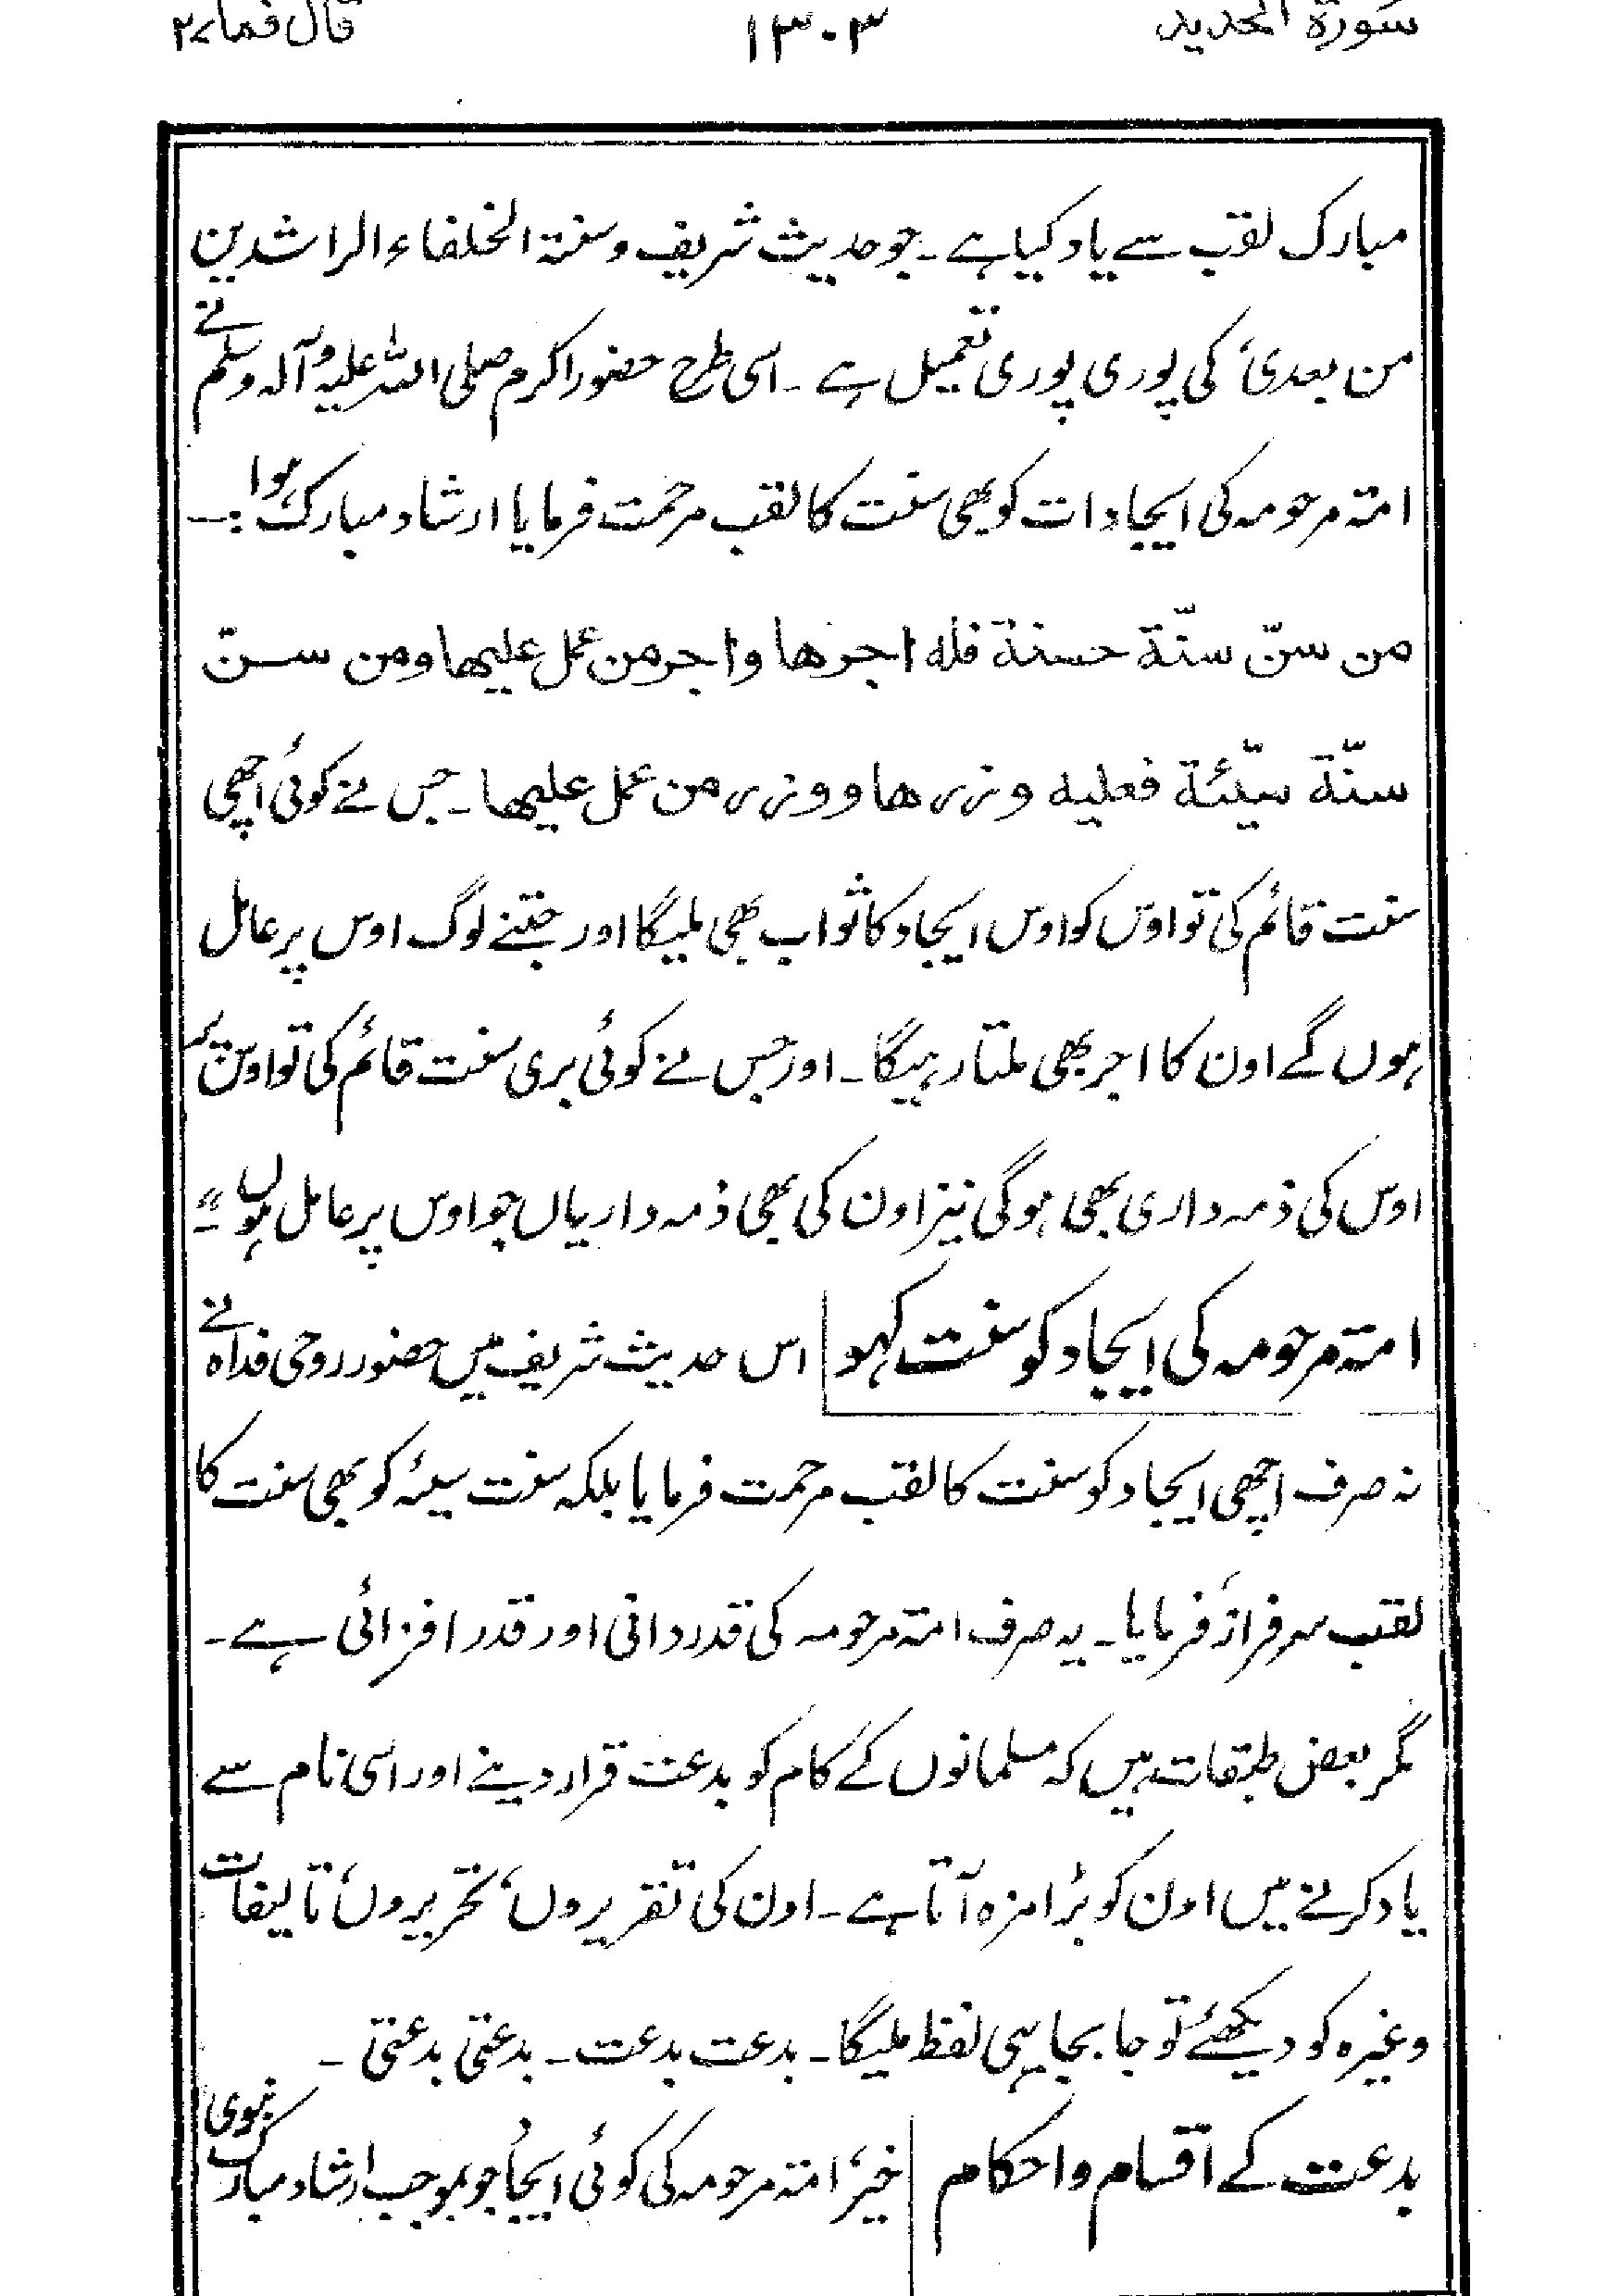 سورة الحديد ١٣٠٣ قال فما ٢٧
مبارک لقب سے یاد کیا ہے ۔ جو حدیث شریف وسنة الخلفاء الراشدین
من بعدی کی پوری پوری تعمیل ہے ۔ اسی طرح حضور اکرم صلی اللہ علیہ وآلہ وسلم نے
امتہ مرحومہ کی ایجادات کو بھی سنت کا لقب مرحمت فرمایا ارشاد مبارک ہوا :۔
من سنّ سنّة حسنة فله اجرها واجر من عمل عليها ومن سنّ
سنّة سيّئة فعليه وزرها ووزر من عمل عليها ۔ جس نے کوئی اچھی
سنت قائم کی تو اوس کو اوس ایجاد کا ثواب بھی ملیگا اور جتنے لوگ اوس پر عامل
ہوں گے اون کا اجر بھی ملتا رہیگا ۔ اور جس نے کوئی بری سنت قائم کی تو اوس پر
اوس کی ذمہ داری بھی ہوگی نیز اون کی بھی ذمہ داریاں جو اوس پر عامل ہوں ''۔
امتہ مرحومہ کی ایجاد کو سنت کہو اس حدیث شریف میں حضور روحی فداہ نے
نہ صرف اچھی ایجاد کو سنت کا لقب مرحمت فرمایا بلکہ سنت سیئہ کو بھی سنت کا
لقب سرفراز فرمایا ۔ یہ صرف امتہ مرحومہ کی قدردانی اور قدر افزائی ہے ۔
مگر بعض طبقات ہیں کہ مسلمانوں کے کام کو بدعت قرار دینے اور اسی نام سے
یاد کرنے میں اون کو بڑا مزہ آتا ہے ۔ اون کی تقریروں، تحریروں، تالیفات
وغیرہ کو دیکھئے تو جا بجا یہی لفظ ملیگا ۔ بدعت بدعت ۔ بدعتی بدعتی ۔
بدعت کے اقسام و احکام خیر، امتہ مرحومہ کی کوئی ایجاد جو بموجب ارشاد مبارک نبوی